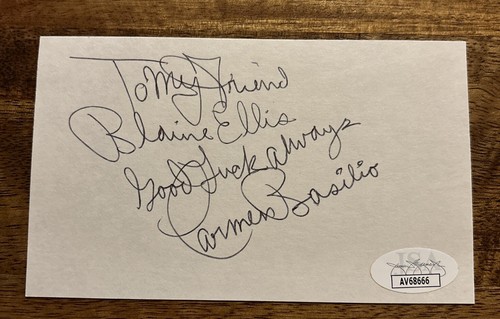 To My Friend
Blaine Ellis
Good Luck always
Carmen Basilio
JSA
AV68666